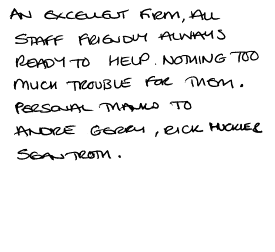 AN EXCELLENT FIRM, ALL
STAFF FRIENDLY ALWAYS
READY TO HELP. NOTHING TOO
MUCH TROUBLE FOR THEM.
PERSONAL THANKS TO
ANDRE GERRY, RICK HUCKLER
SEAN TROTH.